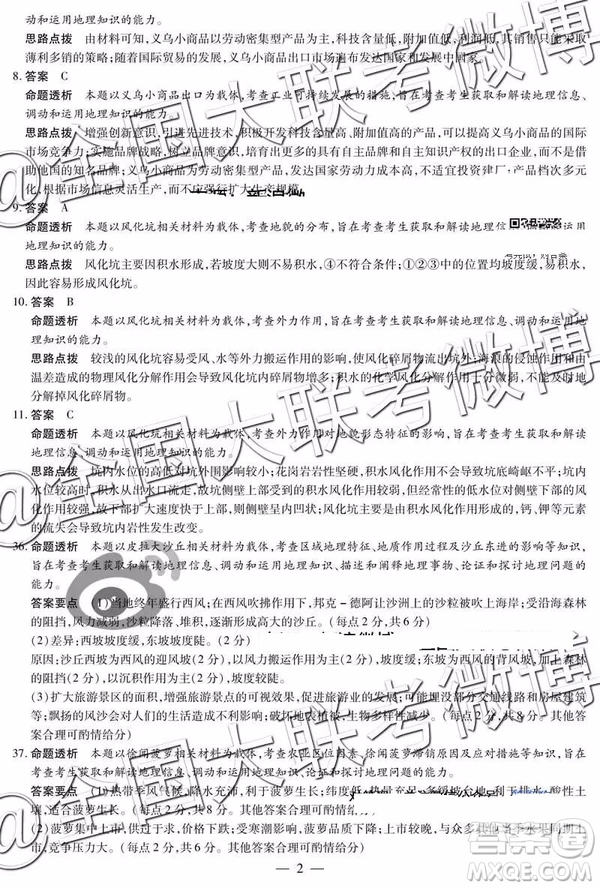 动和运用地理知识的能力。
思路点拨 由材料可知，义乌小商品以劳动密集型产品为主，科技含量低，附加值低，利润低，因而只能采取
薄利多销的策略；随着国际贸易的发展，义乌小商品出口市场遍布发达国家和发展中国家。
8. 答案 C
命题透析 本题以义乌小商品出口为载体，考查工业可持续发展的措施，旨在考查考生获取和解读地理信息、
调动和运用地理知识的能力。
思路点拨 增强创新意识，引进先进技术，积极开发科技含量高、附加值高的产品，可以提高义乌小商品的国际
市场竞争力；实施品牌战略，培育出更多的具有自主品牌、自主知识产权的出口企业，而不是只为国外企业的
知名品牌；义乌小商品为劳动密集型产品，发达国家劳动力成本高，不适宜投资建厂；产品档次多元
化，根据市场信息灵活生产，而不应强行扩大生产规模。
9. 答案 A
命题透析 本题以风化坑相关材料为载体，考查地貌的分布，旨在考查考生获取和解读地理信
地理知识的能力。
思路点拨 风化坑主要因积水形成，若坡度大则不易积水，④不可能形成；①②③中的位置均坡度缓，易积水，
因此容易形成风化坑。
10. 答案 B
命题透析 本题以风化坑相关材料为载体，考查外力作用，旨在考查考生获取和解读地理信息、调动和运用地
理知识的能力。
思路点拨 较浅的风化坑容易受风、水等外力搬运作用的影响，使风化碎屑物不易留存；海浪的侵蚀作用和由
温差造成的物理风化分解作用会导致风化坑内碎屑物增多；积水风化分解作用由于十分微弱，不可能及时地
分解掉风化碎屑物。
11. 答案 C
命题透析 本题以风化坑相关材料为载体，考查外力作用对地貌形态特征的影响，旨在考查考生获取和解读
地理信息、调动和运用地理知识的能力。
思路点拨 坑内水位的高低变化影响不大；花岗岩岩性坚硬，积水风化作用不会导致坑底崎岖不平；风化坑形
成后，多余的积水从出水口流走，故坑侧壁上部受到的积水风化作用较弱，但经常性的低水位对侧壁下部的
风化作用较强，下部扩大速度更快，故侧壁上部呈内凹状；积水风化作用形成的，钙、钾等元素
的流失会导致坑内岩性发生改变。
36. 命题透析 本题以皮拉大沙丘相关材料为载体，考查区域地理特征、地貌特征及沙丘东进的影响等知识，
旨在考查考生获取和解读地理信息、调动和运用地理知识、描述和阐释地理事物、论证和探讨地理问题的
能力。
答案要点 (1)当地终年盛行西风；在西风吹拂作用下，邦克－德阿让沙洲上的沙粒被吹上海岸；受沿海森林
的阻挡，风力减弱，沙粒降落、堆积，形成高大的沙丘。(每点2分，共6分)
(2)差异：西坡坡度缓，东坡坡度陡。(2分)
原因：沙丘西坡为西风的迎风坡(2分)，以风力搬运作用为主(2分)；东坡为西风的背风坡，加上森林
的阻挡(2分)，以沉积作用为主(2分)，坡度陡。
(3)扩大旅游景区的面积，增强旅游吸引力，促进旅游业的发展；破坏沿线的交通线路和房屋建筑
等；飘扬的风沙会对人们的生活造成影响；破坏地表植被，生物多样性减少。(每点2分，共8分。其他答案
合理可酌情给分)
37. 命题透析 本题以徐闻菠萝相关材料为载体，考查农业区位因素、徐闻菠萝的问题与措施等知识，旨在
考查考生获取和解读地理信息、调动和运用地理知识、论证和探讨地理问题的能力。
答案要点 (1)热带季风气候，降水充沛，利于菠萝生长；纬度低，热量充足
壤，适合菠萝生长。(每点2分，共8分。其他答案合理可酌情给分)
(2)菠萝集中上市，供过于求，价格下跌；受寒潮影响，菠萝品质下降；上市较晚，与众多其他当季水果同期上
市，竞争压力大。(每点2分，共6分。其他答案合理可酌情给分)
— 2 —
@全国大联考微博
答案圈
MXQE.COM